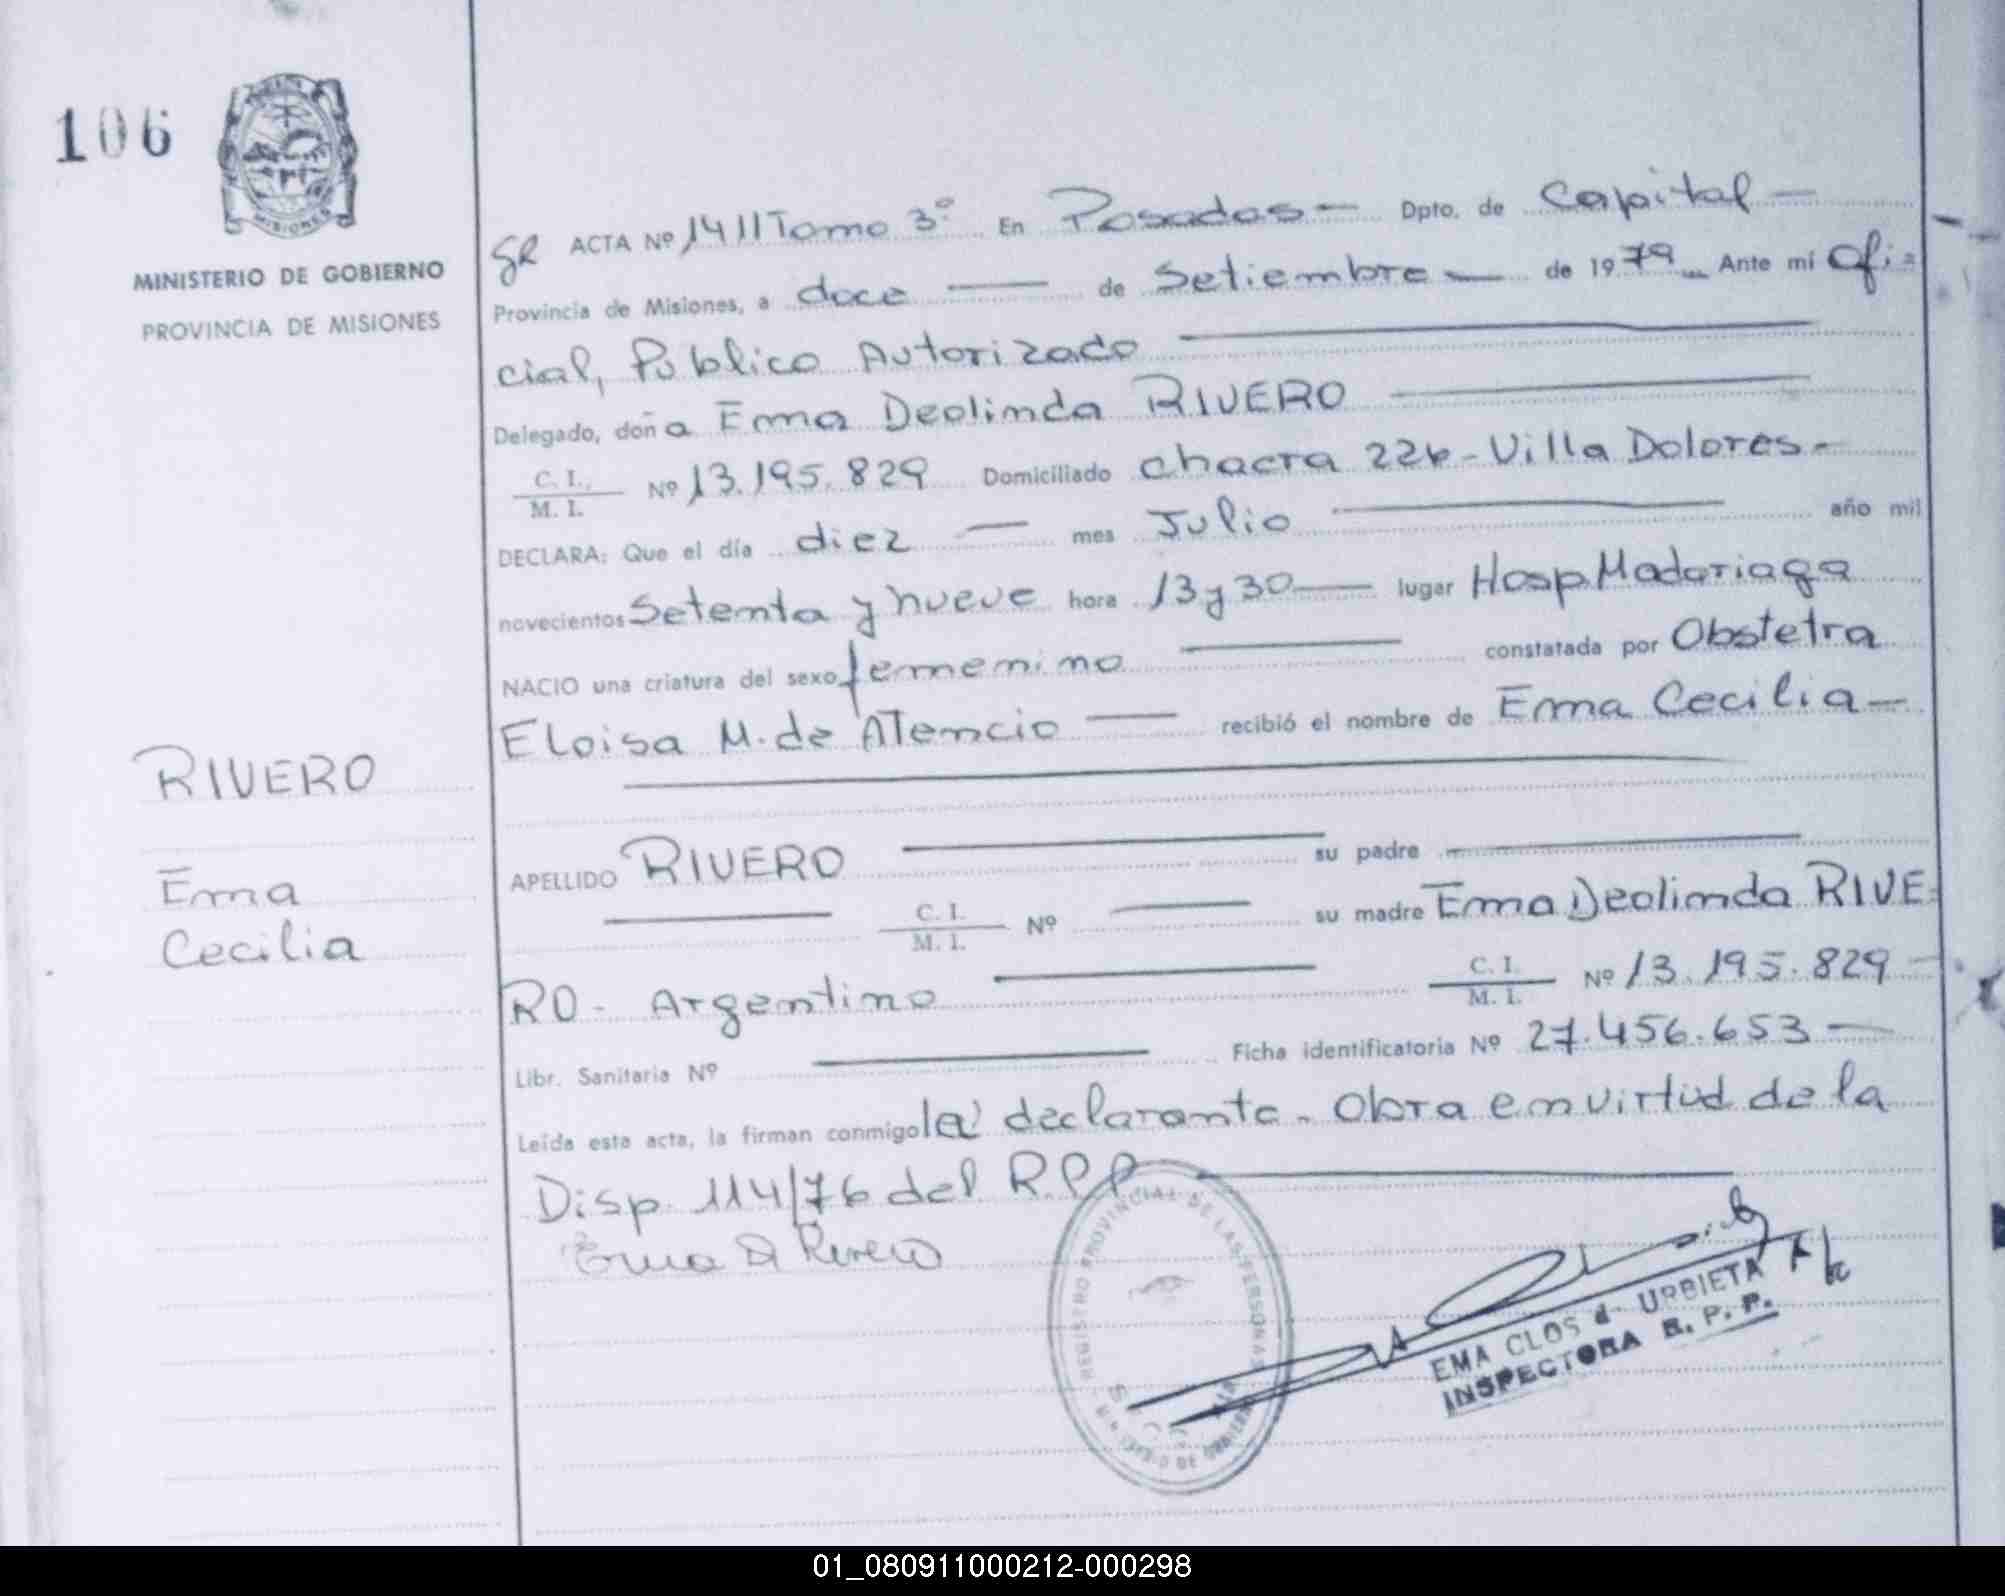 106
MISIONES
MINISTERIO DE GOBIERNO
PROVINCIA DE MISIONES
RIVERO
Ema
Cecilia
ACTA Nº 1411 Tomo 3º En Posadas - Dpto. de Capital -
Provincia de Misiones, a doce — de Setiembre — de 1979 Ante mi Ofi=
cial, Público Autorizado
Delegado, doña Ema Deolinda RIVERO
C. I., M. I. Nº 13.195.829 Domiciliado chacra 226 - Villa Dolores -
DECLARA: Que el día diez — mes Julio — año mil
novecientos Setenta y nueve hora 13 y 30 — lugar Hosp. Madariaga
NACIO una criatura del sexo femenino — constatada por Obstetra
Eloisa M. de Atencio — recibió el nombre de Ema Cecilia -
APELLIDO RIVERO — su padre —
— C. I. M. I. Nº — su madre Ema Deolinda RIVE=
RO - Argentino — C. I. M. I. Nº 13.195.829
Libr. Sanitaria Nº — Ficha identificatoria Nº 27.456.653 -
Leída esta acta, la firman conmigo la declarante - Obra en virtud de la
Disp. 114/76 del R.P.P
Ema D Rivero
REGISTRO PROVINCIAL DE LAS PERSONAS
EMA CLOS d URBIETA
INSPECTORA R. P. P.
01_080911000212-000298